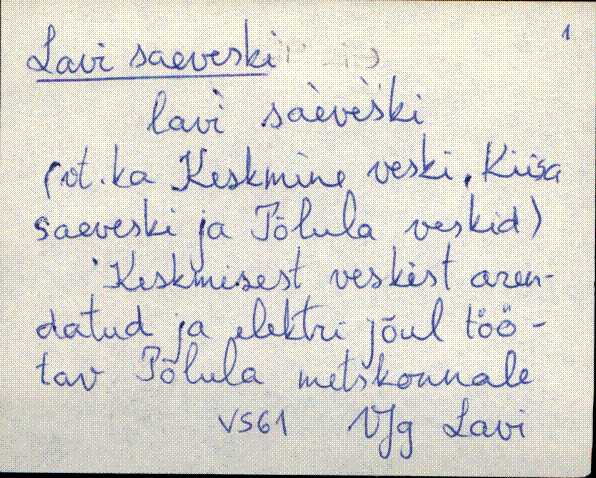 1
Lavi saeveski
lavi saeveski
(vt. ka Keskmine veski, Kiisa
saeveski ja Põlula veskid)
Keskmisest veskist aren-
datud ja elektri jõul töö-
tav Põlula metskonnale
VS61 VJg Lavi